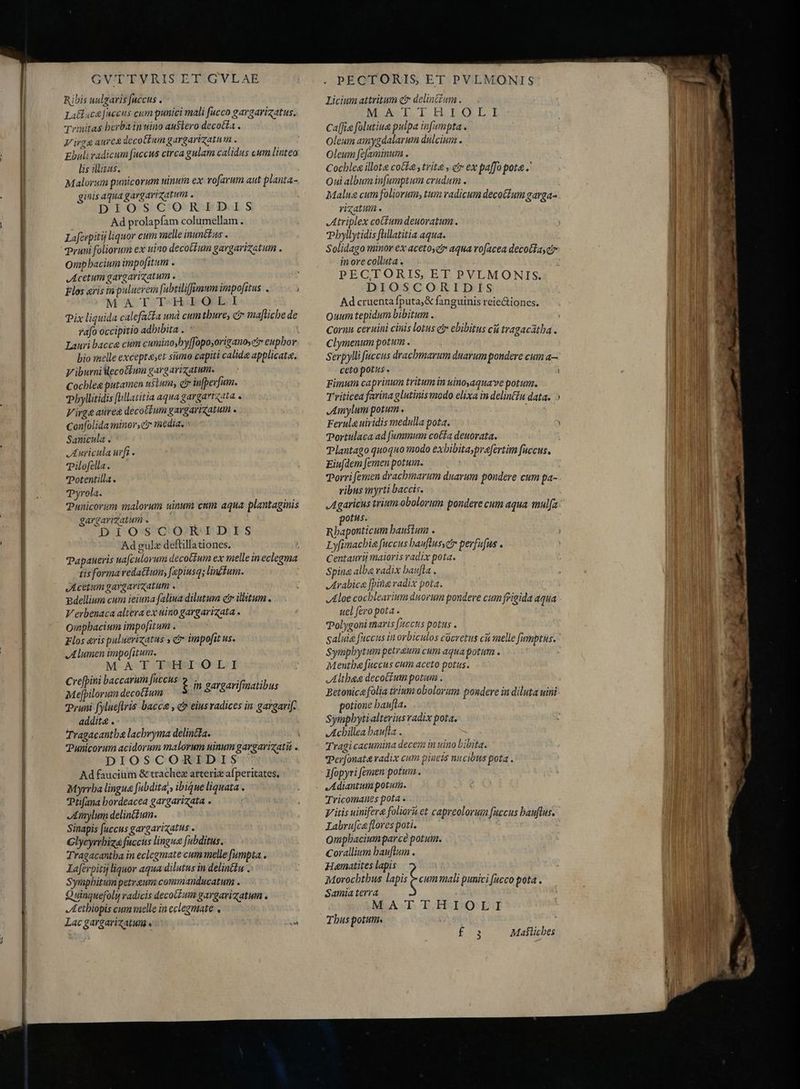 GVTTVRIS ET GVLAE
Ribis uulgaris ſuccus .
Lactucæ ſuccus cum punici mali ſucco gargarizatus.
Trinitas herba in uino auſtero decocta .
Virgæ aureæ decoctum gargarizatum .
Ebuli radicum ſuccus circa gulam calidus cum linteo
lis illitus.
Malorum punicorum uinum ex roſarum aut planta-
ginis aqua gargarizatum .
DIOSCORIDIS
Ad prolapſam columellam .
Laſerpitij liquor cum melle inunctus .
Pruni foliorum ex uino decoctum gargarizatum .
Omphacium impoſitum .
Acetum gargarizatum .
Flos æris in puluerem ſubtiliſſimum impoſitus .
MATTHIOLI
Pix liquida calefacta unà cum thure, & maſtiche de
raſo occipitio adhibita .
Lauri baccæ cum cumino,hyſſopo,origano,& euphor
bio melle exceptæ,et sũmo capiti calidæ applicatæ.
Viburni decoctum gargarizatum.
Cochleæ putamen uſtum, & inſperſum.
Phyllitidis ſtillatitia aqua gargarizata .
Virgæ aureæ decoctum gargarizatum .
Conſolida minor,& media.
Sanicula .
Auricula urſi .
Piloſella .
Potentilla .
Pyrola.
Punicorum malorum uinum cum aqua plantaginis
gargarizatum .
DIOSCORIDIS
Ad gulæ deſtillationes.
Papaueris uaſculorum decoctum ex melle in eclegma
tis forma redactum, ſæpiusq; linctum.
Acetum gargarizatum .
Bdellium cum ieiuna ſaliua dilutum & illitum .
Verbenaca altera ex uino gargarizata .
Omphacium impoſitum .
Flos æris puluerizatus , & impoſitus.
Alumen impoſitum.
MATTHIOLI
Creſpini baccarum ſuccus
Meſpilorum decoctum } in gargariſmatibus
Pruni ſylueſtris baccæ , & eius radices in gargariſ.
additæ .
Tragacanthæ lachryma delincta.
Punicorum acidorum malorum uinum gargarizatũ .
DIOSCORIDIS
Ad faucium & tracheæ arteriæ aſperitates.
Myrrha linguæ ſubdita, ibique liquata .
Ptiſana hordeacea gargarizata .
Amylum delinctum.
Sinapis ſuccus gargarizatus .
Glycyrrhizæ ſuccus linguæ ſubditus.
Tragacantha in eclegmate cum melle ſumpta .
Laſerpitij liquor aqua dilutus in delinctu .
Symphitum petræum commanducatum .
Quinquefolij radicis decoctum gargarizatum .
Aethiopis cum melle in eclegmate .
Lac gargarizatum .
PECTORIS, ET PVLMONIS
Licium attritum & delinctum .
MATTHIOLI
Caſſiæ ſolutiuæ pulpa inſumpta .
Oleum amygdalarum dulcium .
Oleum ſeſaminum .
Cochleæ illotæ coctæ, tritæ , & ex paſſo potæ .
Oui album inſumptum crudum .
Maluæ cum foliorum, tum radicum decoctum garga-
rizatum .
Atriplex coctum deuoratum .
Phyllytidis ſtillatitia aqua.
Solidago minor ex aceto,& aqua roſacea decocta,&
in ore colluta .
PECTORIS, ET PVLMONIS.
DIOSCORIDIS
Ad cruenta ſputa,& ſanguinis reiectiones.
Ouum tepidum bibitum .
Cornu ceruini cinis lotus & ebibitus cũ tragacãtha .
Clymenum potum .
Serpylli ſuccus drachmarum duarum pondere cum a-
ceto potus .
Fimum caprinum tritum in uino,aquaue potum.
Triticea farina glutinis modo elixa in delinctu data.
Amylum potum .
Ferulæ uiridis medulla pota.
Portulaca ad ſummum cocta deuorata.
Plantago quoquo modo exhibita,præſertim ſuccus.
Eiuſdem ſemen potum.
Porri ſemen drachmarum duarum pondere cum pa-
ribus myrti baccis.
Agaricus trium obolorum pondere cum aqua mulſa
potus.
Rhaponticum hauſtum .
Lyſimachiæ ſuccus hauſtus,& perfuſus .
Centaurij maioris radix pota.
Spinæ albæ radix hauſta .
Arabicæ ſpinæ radix pota.
Aloe cochlearium duorum pondere cum frigida aqua
uel ſero pota .
Polygoni maris ſuccus potus .
Saluiæ ſuccus in orbiculos cõcretus cũ melle ſumptus.
Symphytum petræum cum aqua potum .
Menthæ ſuccus cum aceto potus.
Altheæ decoctum potum .
Betonicæ folia trium obolorum pondere in diluta uini
potione hauſta.
Symphyti alterius radix pota.
Achillea hauſta .
Tragi cacumina decem in uino bibita.
Perſonatæ radix cum pineis nucibus pota .
Iſopyri ſemen potum .
Adiantum potum.
Tricomanes pota .
Vitis uiniferæ foliorũ et capreolorum ſuccus hauſtus.
Labruſcæ flores poti.
Omphacium parcè potum.
Corallium hauſtum .
Hæmatites lapis
Morochthus lapis } cum mali punici ſucco pota .
Samia terra
MATTHIOLI
Thus potum.
f 3 Maſtiches